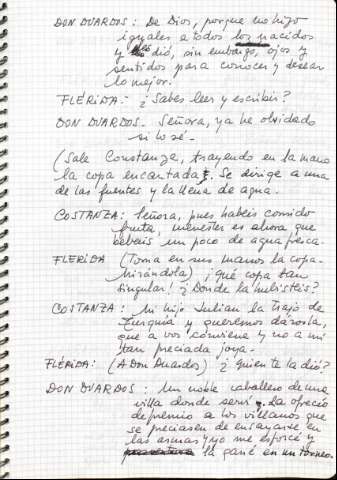 DON DUARDOS: De Dios, porque no hizo
iguales a todos los nacidos
y dió, sin embargo, ojos y
sentidos para conocer y desear
lo mejor.
FLÉRIDA: ¿Sabes leer y escribir?
DON DUARDOS. Señora, ya he olvidado
si lo sé.
(Sale Constanza, trayendo en la mano
la copa encantada. Se dirige a una
de las fuentes y la llena de agua.
COSTANZA: Señora, pues habéis comido
fruta, menester es ahora que
bebáis un poco de agua fresca.
FLERIDA (Toma en sus manos la copa.
Mirándola) ¡Qué copa tan
singular! ¿Donde la hubisteis?
COSTANZA: Mi hijo Julian la trajo de
Turquía y queremos dárosla,
que a vos conviene y no a mí
tan preciada joya.
FLÉRIDA: (A Don Duardos) ¿Quién te la dió?
DON DUARDOS: Un noble caballero de una
villa donde serví. La ofreció
de premio a los villanos que
se preciasen de ensayarse en
las armas y yo me esforcé y
la gané en un torneo.